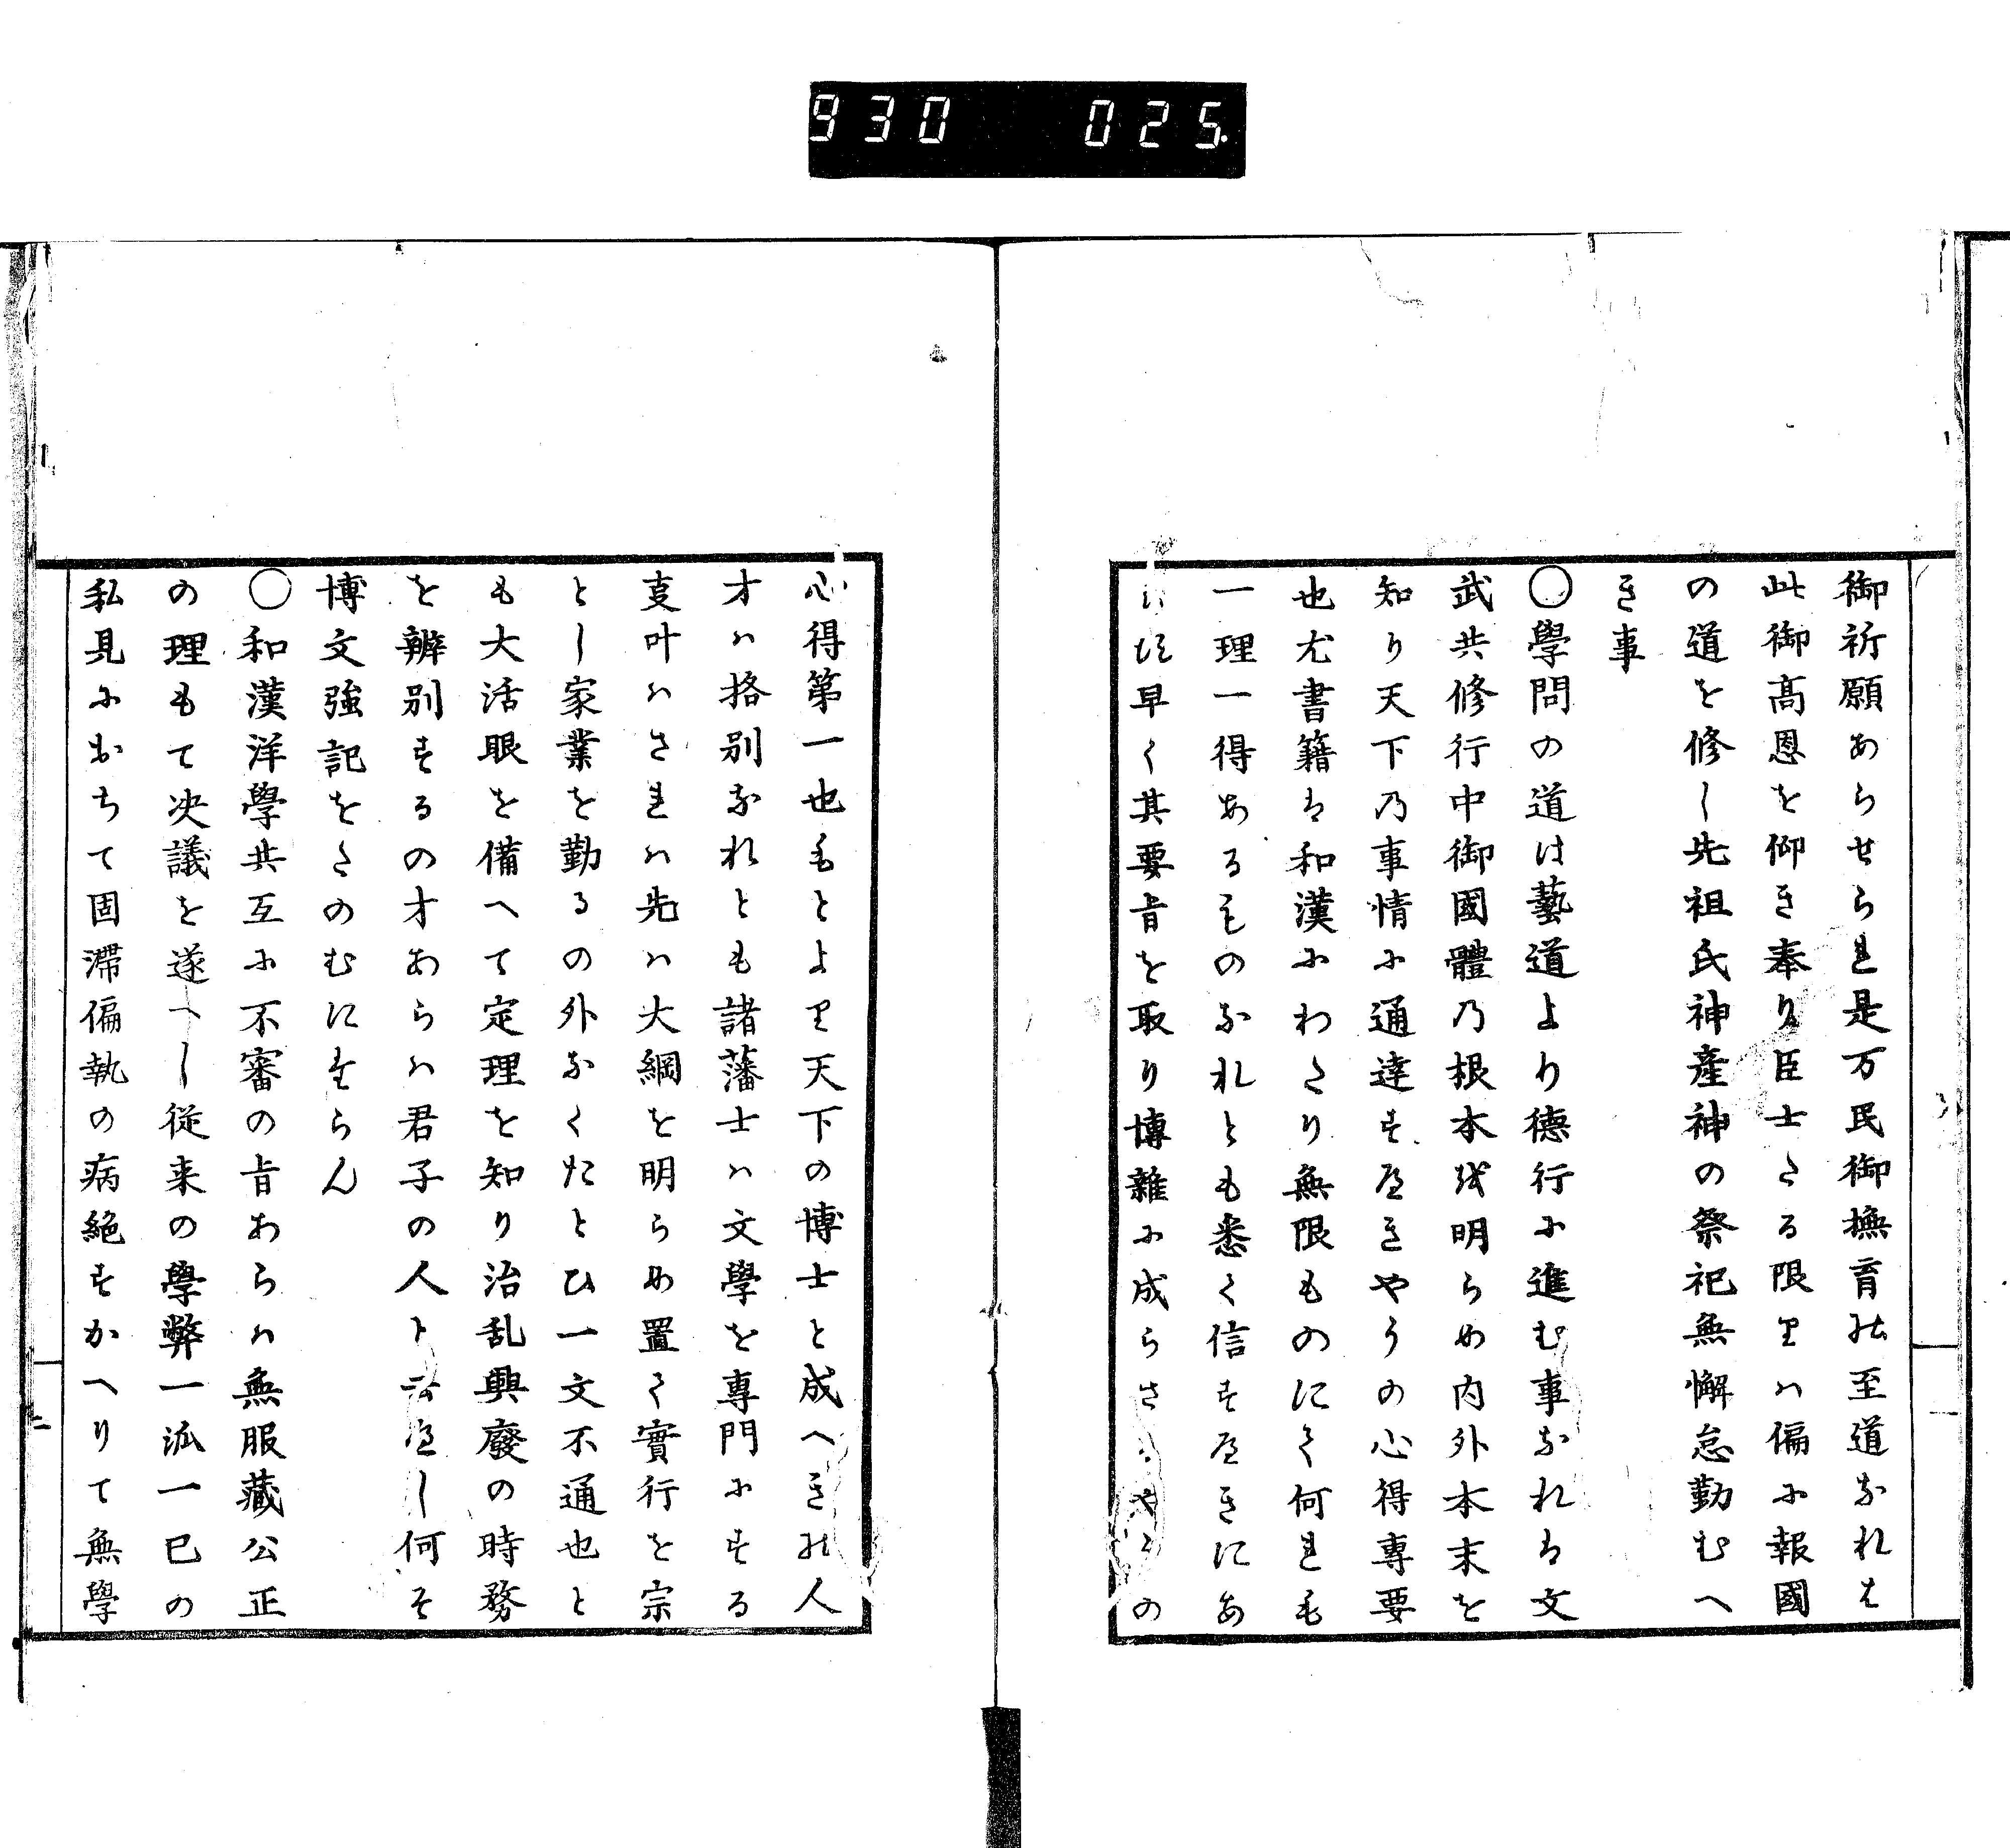 930 025
御祈願あらせられ是万民御撫育の至道なれは
此御高恩を仰き奉り臣士たる限りハ偏に報國
の道を修し先祖氏神産神の祭祀無懈怠勤むへ
き事
〇學問の道は藝道より德行に進む事なれは文
武共修行中御國體乃根本を明らめ内外本末を
知り天下乃事情に通達すへきやうの心得專要
也尤書籍は和漢にわたり無限ものにて何れも
一理一得あるものなれとも悉く信すへきにあ
らす早く其要旨を取り博雜に成らさるやうの
心得第一也もとより天下の博士と成へきの人
才ハ格別なれとも諸藩士ハ文學を專門にする
事叶ハされハ先ハ大綱を明らめ置く實行を宗
とし家業を勤るの外なくたとひ一文不通也と
も大活眼を備へて定理を知り治乱興廢の時務
を辨別するの才あらハ君子の人ト云へし何そ
博文強記をたのむにたらん
〇和漢洋學共互に不審の旨あらハ無服藏公正
の理もて决議を遂へし従来の學弊一派一己の
私見におちて固滯偏執の病絶すかへりて無學